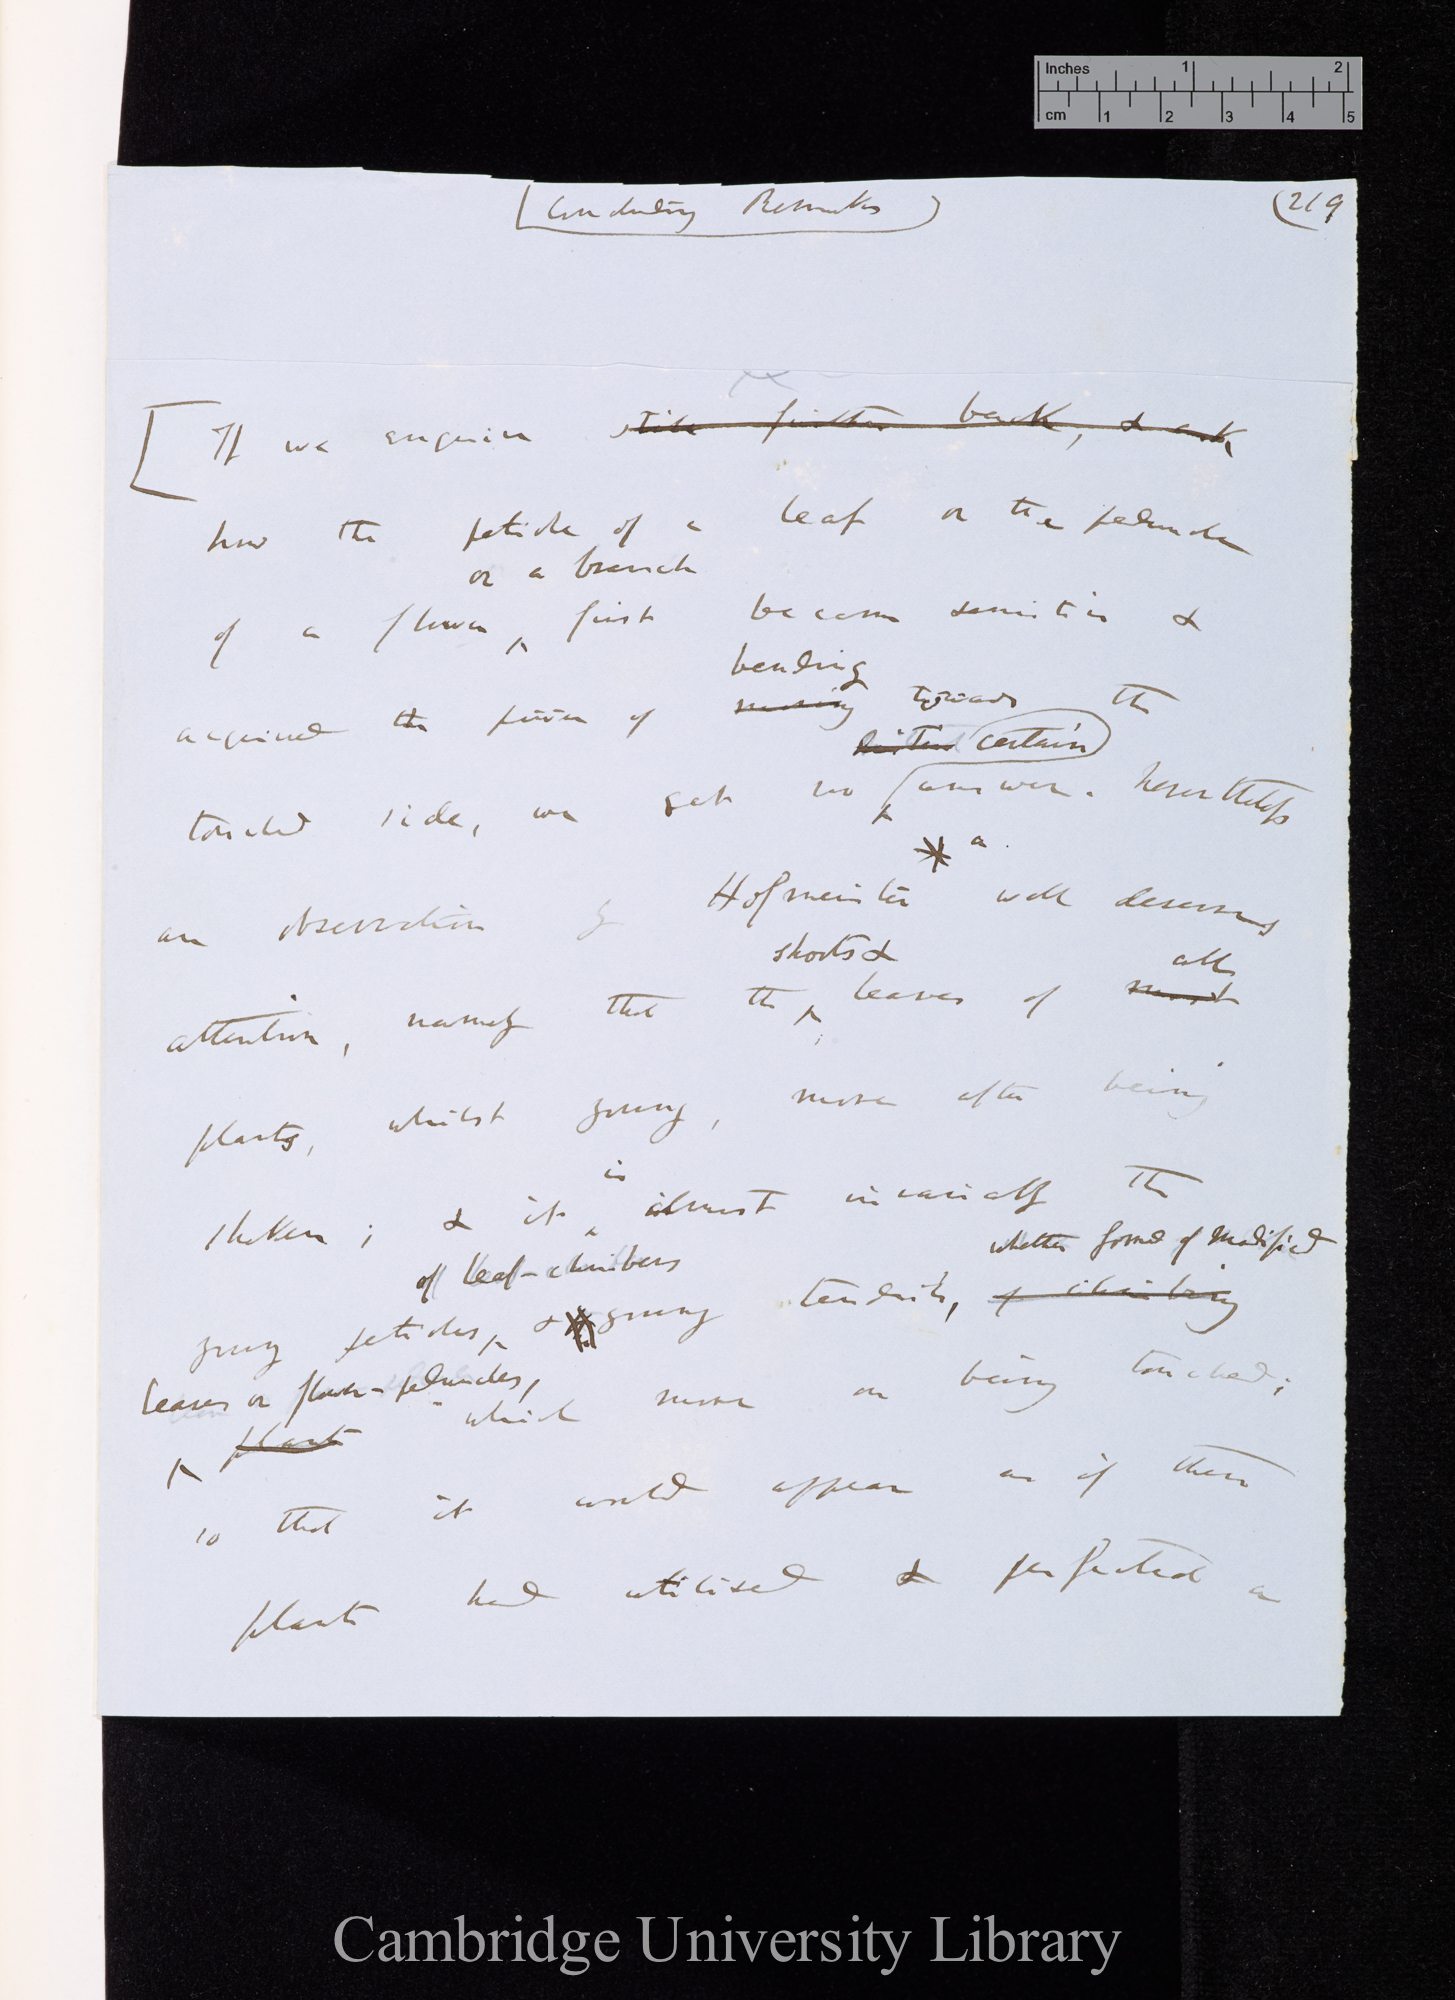 Inches 1 2
cm 1 2 3 4 5
Concluding Remarks (219
If we enquire still further back, & ask
how the petiole of a leaf or the peduncle
or a branch
of a flower first became sensitive &
bending
acquired the power of moving towards the
certain
touched side, we get no answer. Nevertheless
* a
an observation by Hofmeister well deserves
shoots & all
attention, namely that the leaves of most
plants, whilst young, move after being
is
shaken; & it almost invariably the
of leaf-climbers whether formed of modified
young petioles, & young tendrils, of climbing
leaves or flower-peduncles,
plants which move on being touched;
so that it would appear as if these
plants had utilised & perfected a
Cambridge University Library